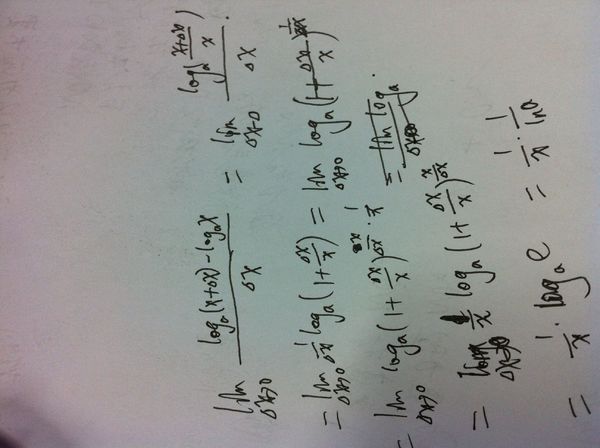 lim Δx→0 (logₐ(x+Δx) - logₐx)/Δx = lim Δx→0 logₐ((x+Δx)/x)/Δx
= lim Δx→0 1/Δx logₐ(1+Δx/x) = lim Δx→0 logₐ(1+Δx/x)^(1/Δx)
= lim Δx→0 logₐ(1+Δx/x)^(x/Δx · 1/x)
= lim Δx→0 1/x logₐ(1+Δx/x)^(x/Δx)
= 1/x · logₐe = 1/x · 1/lna